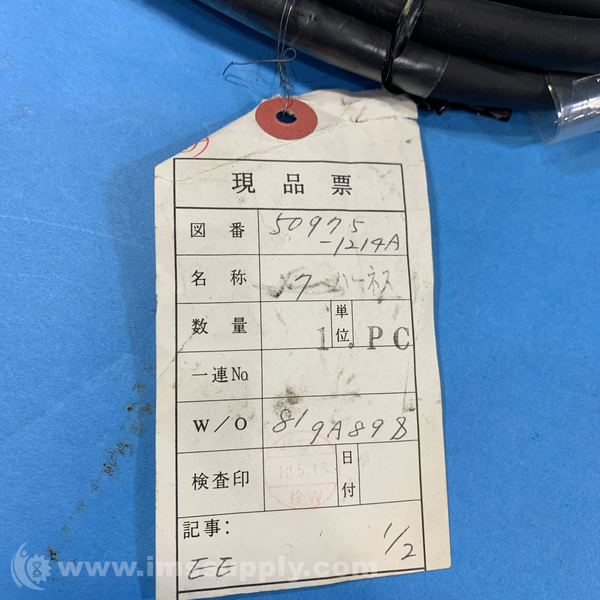 現品票
図番 50975
-1214A
名称 ハーネス
数量 1 単位 PC
一連No.
W/O 819A898
検査印 10.5.1 検W 日付
記事:
EE 1/2
www.imssupply.com